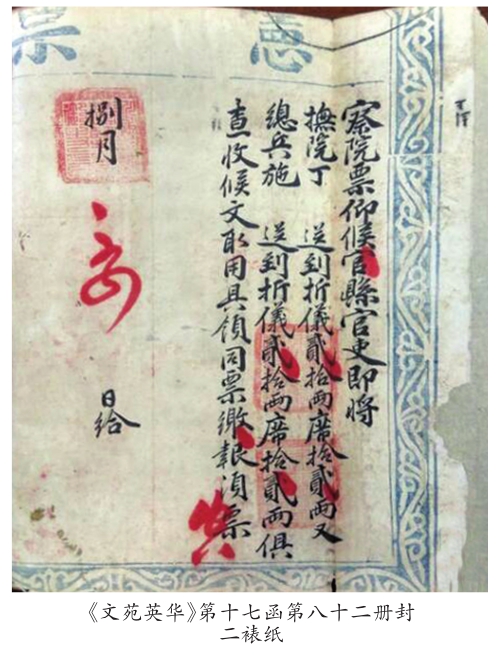 憲票
察院票仰候官縣官吏即將
撫院丁 送到折儀貳拾兩席拾貳兩又
總兵施 送到折儀貳拾兩席拾貳兩俱
查收候文取用具領同票繳報須票
捌月
日給
《文苑英华》第十七函第八十二册封
二裱纸